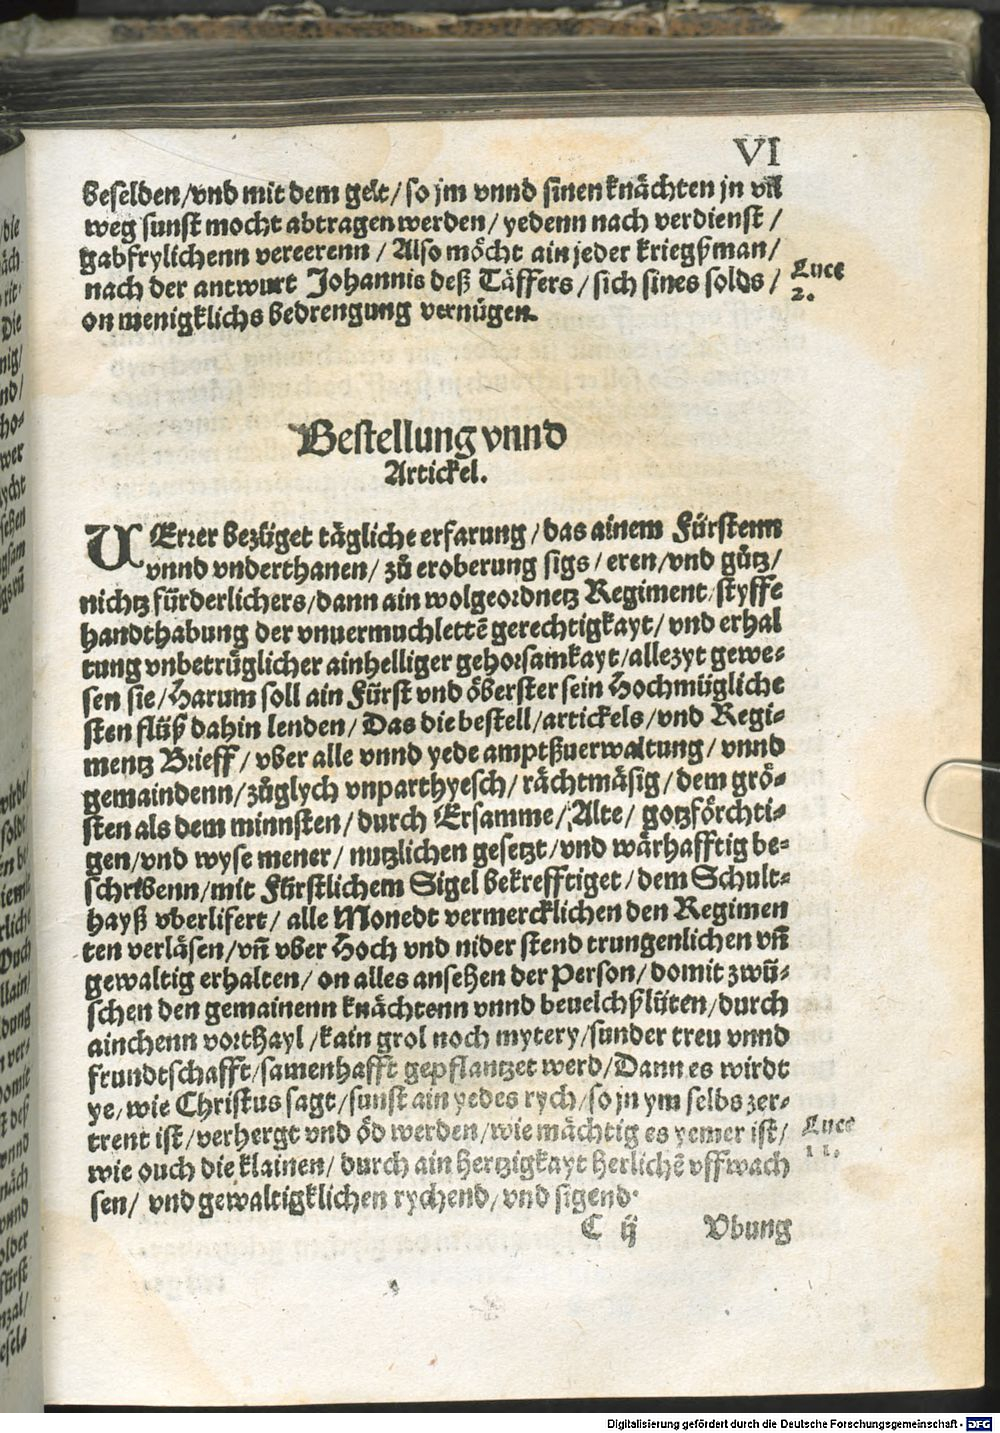 VI
beselden/vnd mit dem gelt/so jm vnnd sinen knächten jn vñ
weg sunst mocht abtragen werden/ yedenn nach verdienst/
gabfrylichenn vereerenn/ Also möcht ain jeder kriegßman/
nach der antwurt Johannis deß Täffers/ sich sines solds/
on menigklichs bedrengung vernügen.
Luce
2.
Bestellung vnnd
Artickel.
WErrer bezüget tägliche erfarung/das ainem Fürstenn
vnnd vnderthanen/ zů eroberung sigs/ eren/vnd gůtz/
nichtz fürderlichers/dann ain wolgeordnetz Regiment/styffe
handthabung der vnuermuchlettē gerechtigkayt/ vnd erhal
tung vnbetrüglicher ainhelliger gehorsamkayt/allezyt gewe-
sen sie/Harum soll ain Fürst vnd öberster sein Hochmügliche
sten flüß dahin lenden/ Das die bestell/artickels/vnd Regi-
mentz Brieff/ vber alle vnnd yede amptßuerwaltung/ vnnd
gemaindenn/zůglych vnparthyesch/ rächtmäsig/dem grö-
sten als dem minnsten/durch Ersamme/Alte/ gotzförchti-
gen/vnd wyse mener/ nutzlichen gesetzt/vnd wärhafftig be-
schribenn/mit Fürstlichem Sigel bekrefftiget/dem Schult-
hayß vberlifert/ alle Monedt vermercklichen den Regimen
ten verläsen/vñ vber Hoch vnd nider stend trungenlichen vñ
gewaltig erhalten/ on alles ansehen der Person/domit zwü-
schen den gemainenn knächtenn vnnd beuelchßlüten/durch
ainchenn vorthayl/kain grol noch mytery/sunder treu vnnd
frundtschafft/samenhafft gepflantzet werd/Dann es wirdt
ye/wie Christus sagt/sunst ain yedes rych/so jn ym selbs zer-
trent ist/verhergt vnd öd werden/wie mächtig es yemer ist/
wie ouch die klainen/ durch ain hertzigkayt herlichē vffwach
sen/ vnd gewaltigklichen rychend/vnd sigend.
Luce
11.
C ij Vbung
Digitalisierung gefördert durch die Deutsche Forschungsgemeinschaft - DFG